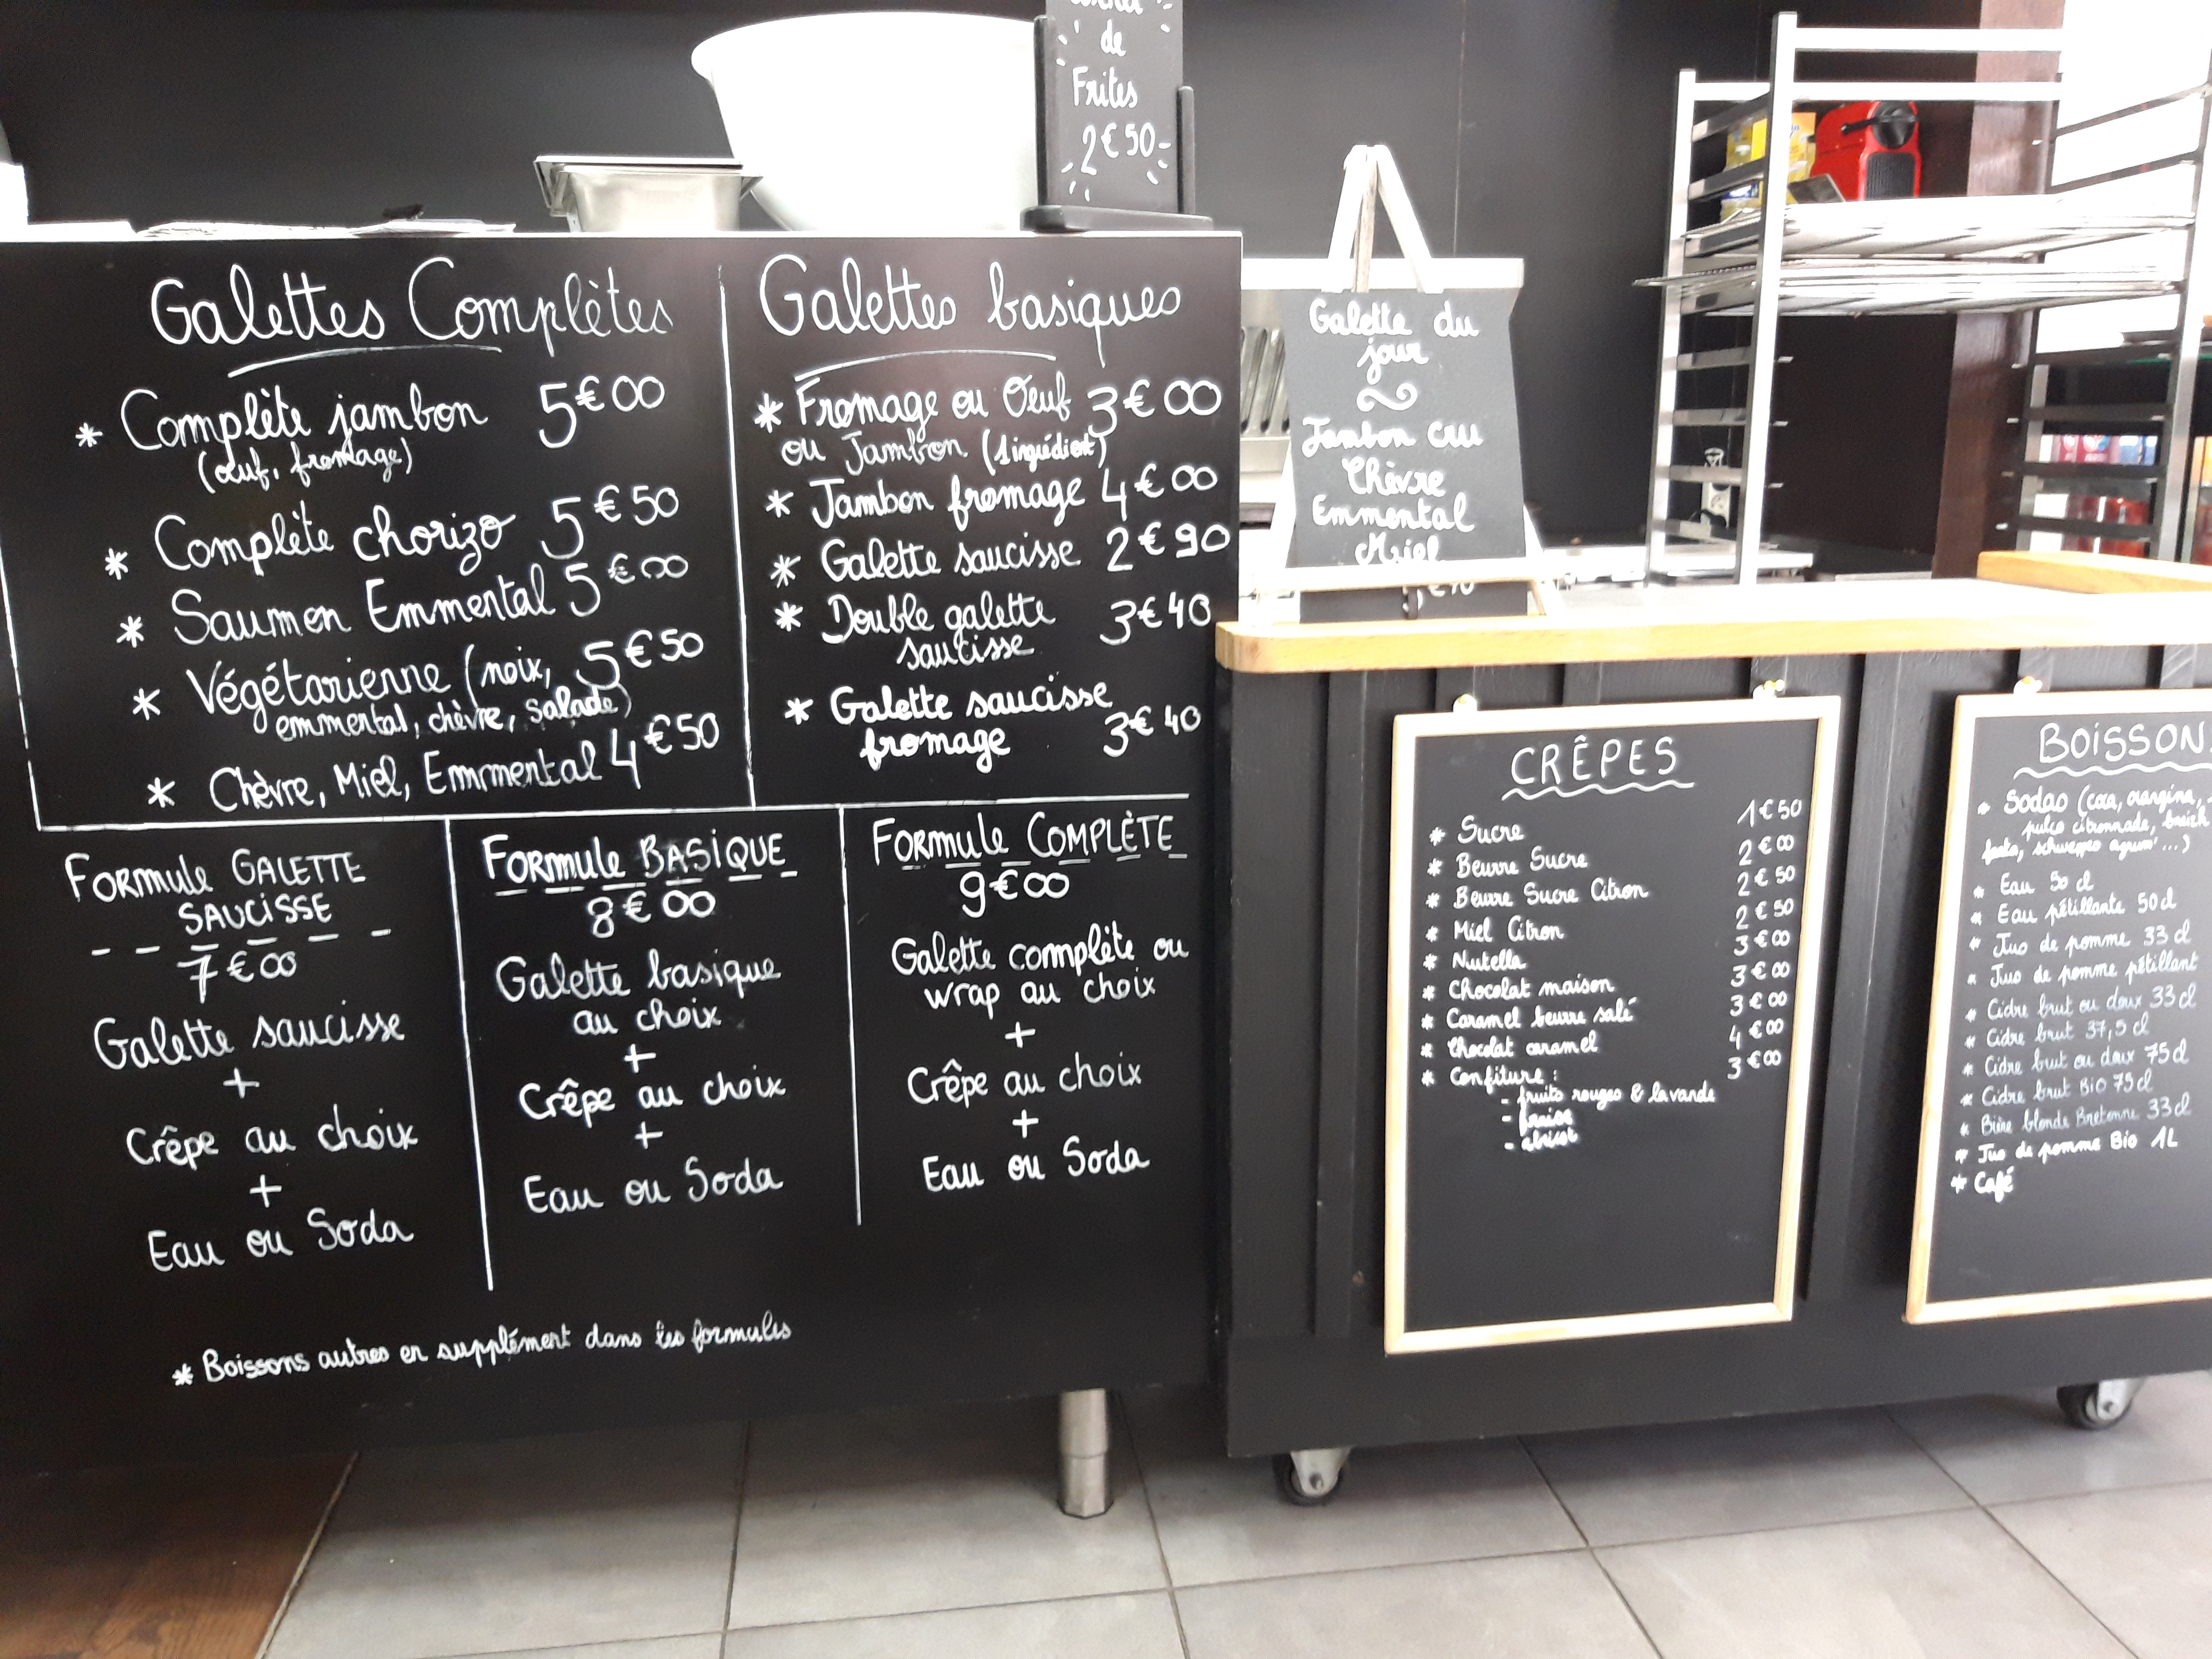 de
Frites
2€50
Galettes Complètes
* Complète jambon 5€00
(œuf, fromage)
* Complète chorizo 5€50
* Saumon Emmental 5€00
* Végétarienne (noix, 5€50
emmental, chèvre, salade)
* Chèvre, Miel, Emmental 4€50
Galettes basiques
* Fromage ou Œuf 3€00
ou Jambon (1 ingrédient)
* Jambon fromage 4€00
* Galette saucisse 2€90
* Double galette 3€40
saucisse
* Galette saucisse
fromage 3€40
FORMULE GALETTE
SAUCISSE
7€00
Galette saucisse
+
Crêpe au choix
+
Eau ou Soda
FORMULE BASIQUE
8€00
Galette basique
au choix
+
Crêpe au choix
+
Eau ou Soda
FORMULE COMPLÈTE
9€00
Galette complète ou
wrap au choix
+
Crêpe au choix
+
Eau ou Soda
* Boissons autres en supplément dans les formules
Galette du
jour
Jambon cru
Chèvre
Emmental
Miel
CRÊPES
* Sucre 1€50
* Beurre Sucre 2€00
* Beurre Sucre Citron 2€50
* Miel Citron 2€50
* Nutella 3€00
* Chocolat maison 3€00
* Caramel beurre salé 3€00
* Chocolat caramel 4€00
* Confiture : 3€00
- fruits rouges & lavande
- fraise
- abricot
BOISSON
* Sodas (coca, orangina,
pulco citronnade, breizh
schweppes agrum'...)
* Eau 50 cl
* Eau pétillante 50cl
* Jus de pomme 33 cl
* Jus de pomme pétillant
* Cidre brut ou doux 33 cl
* Cidre brut 37,5 cl
* Cidre brut ou doux 75 cl
* Cidre brut Bio 75 cl
* Bière blonde Bretonne 33 cl
* Jus de pomme Bio 1L
* Café